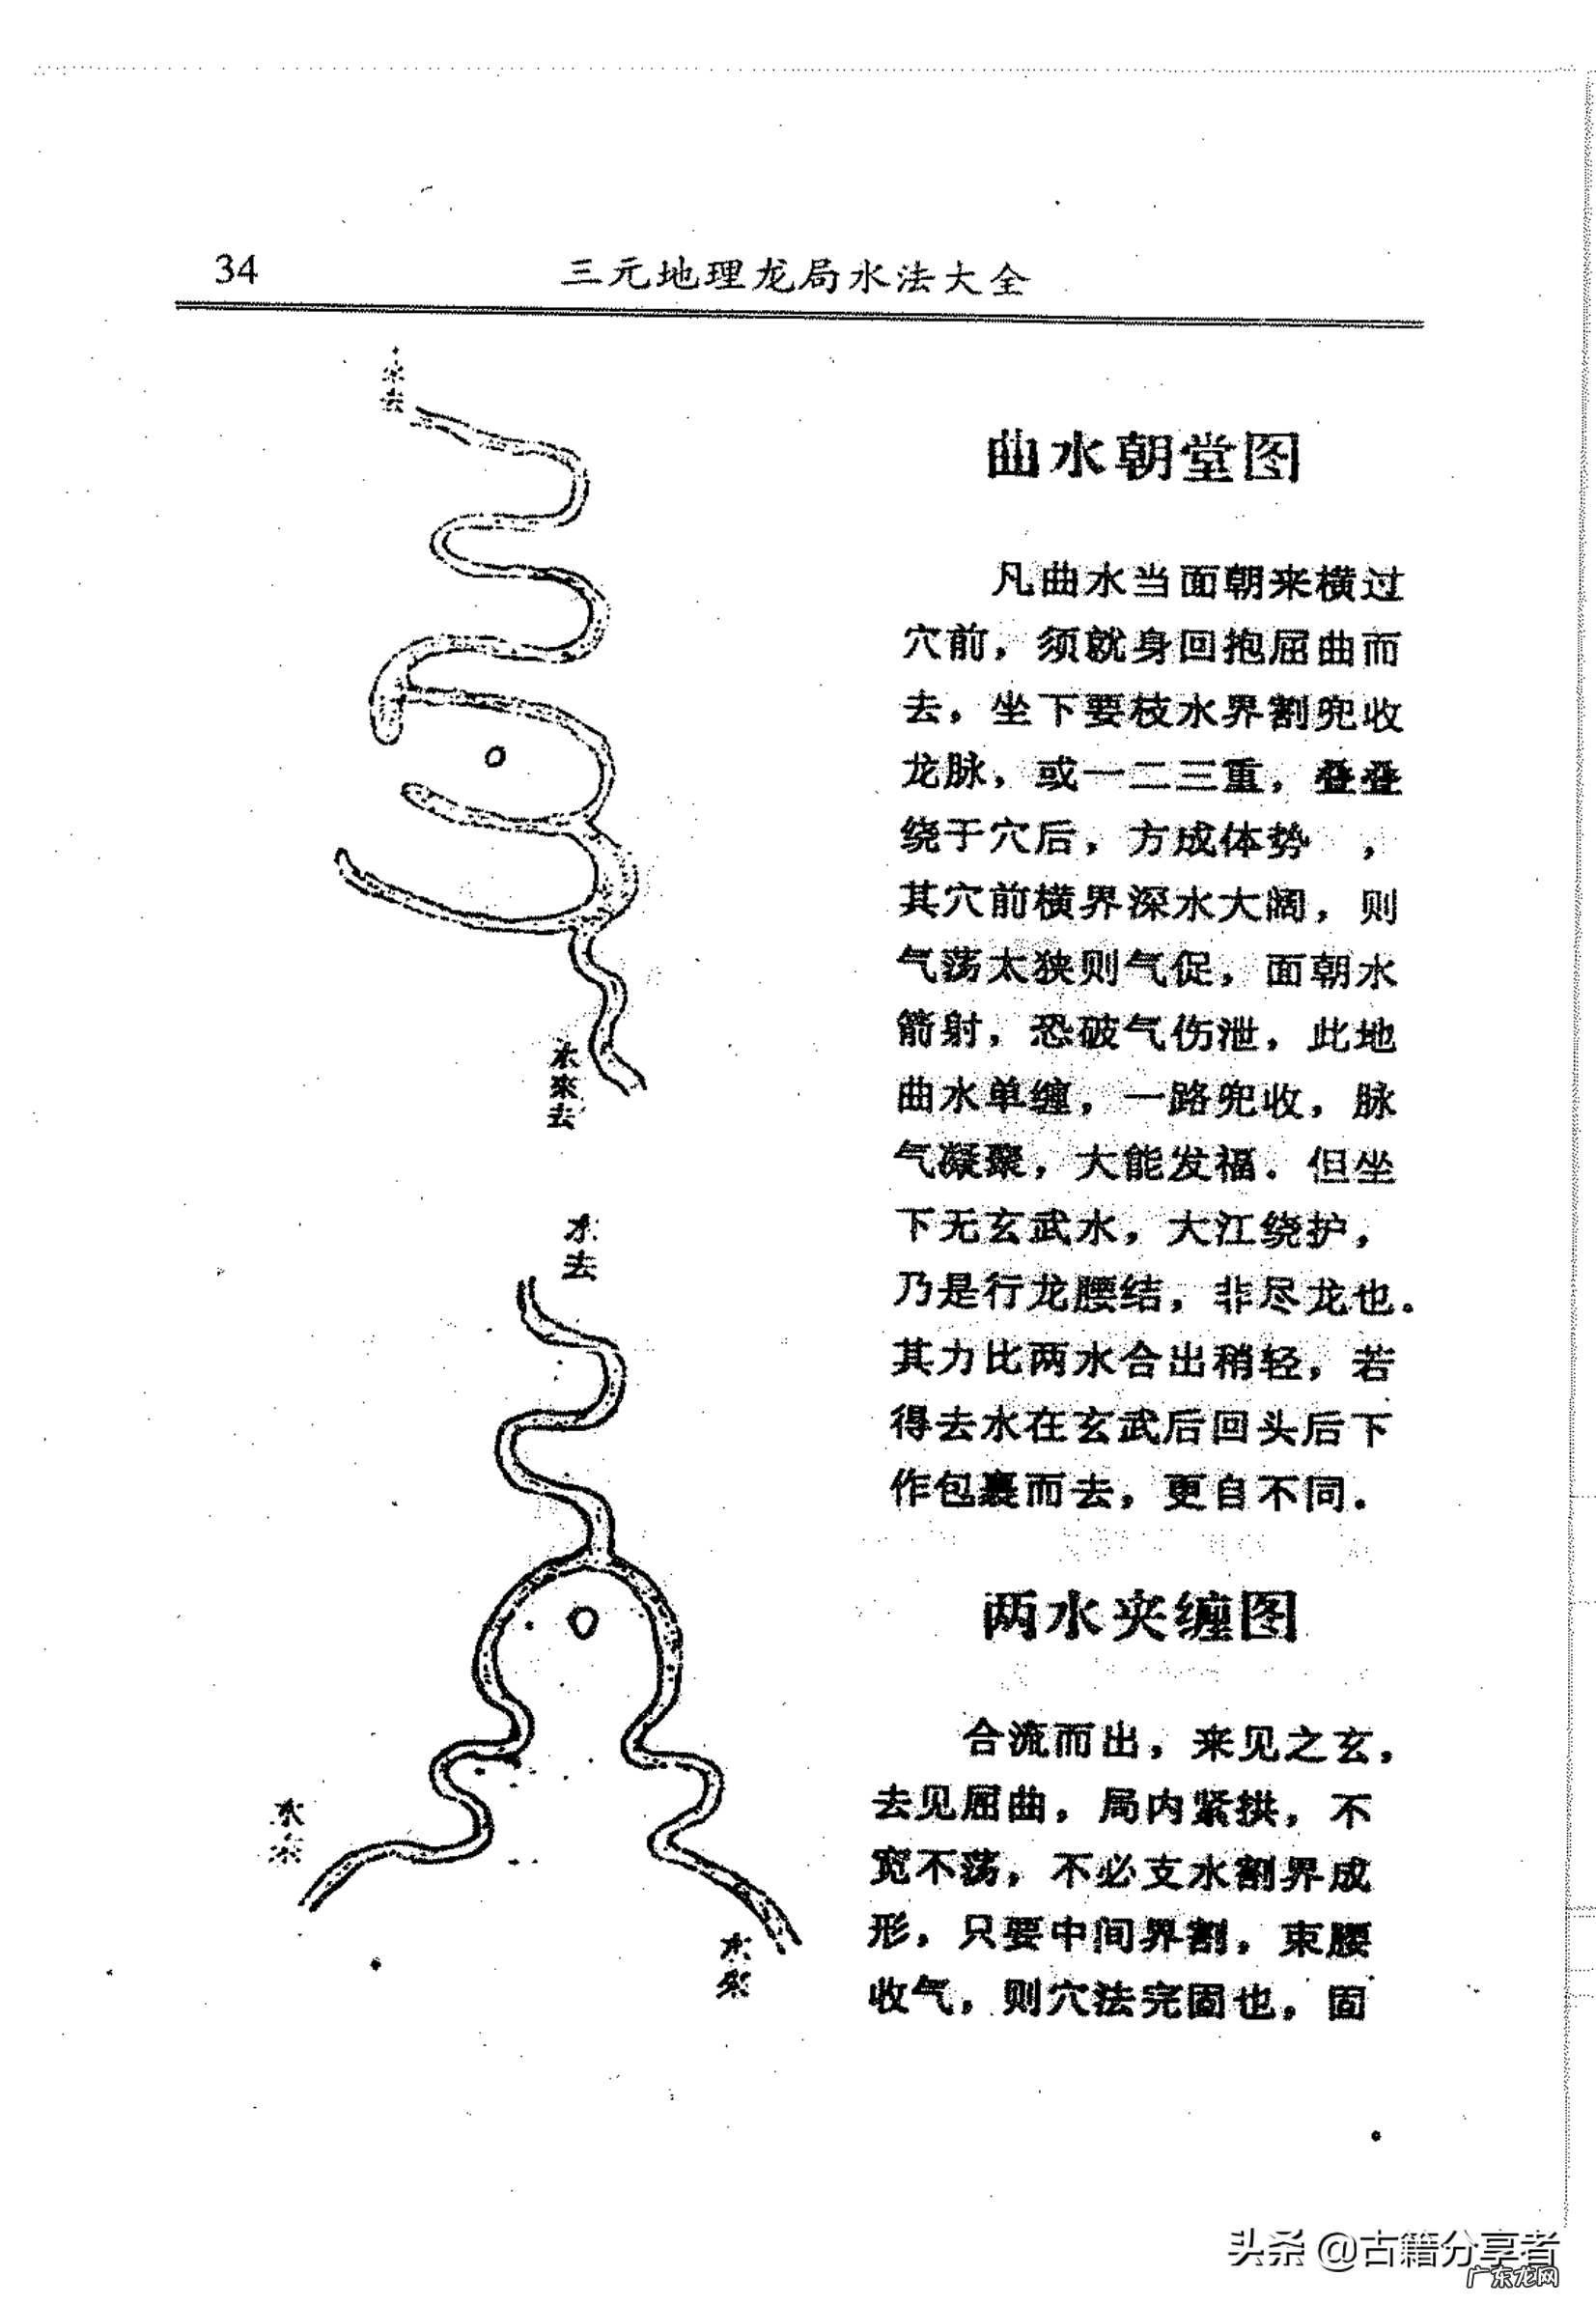 34
三元地理龙局水法大全
曲水朝堂图
凡曲水当面朝来横过
穴前，须就身回抱屈曲而
去，坐下要枝水界割兜收
龙脉，或一二三重，叠叠
绕于穴后，方成体势，
其穴前横界深水大阔，则
气荡太狭则气促，面朝水
箭射，恐破气伤泄，此地
曲水单缠，一路兜收，脉
气凝聚，大能发福．但坐
下无玄武水，大江绕护，
乃是行龙腰结，非尽龙也．
其力比两水合出稍轻，若
得去水在玄武后回头后下
作包裹而去，更自不同．
两水夹缠图
合流而出，来见之玄，
去见屈曲，局内紧拱，不
宽不荡，不必支水割界成
形，只要中间界割，束腰
收气，则穴法完固也，固
水去
水來去
水去
水
水來
头条 @古籍分享者
广东龙网